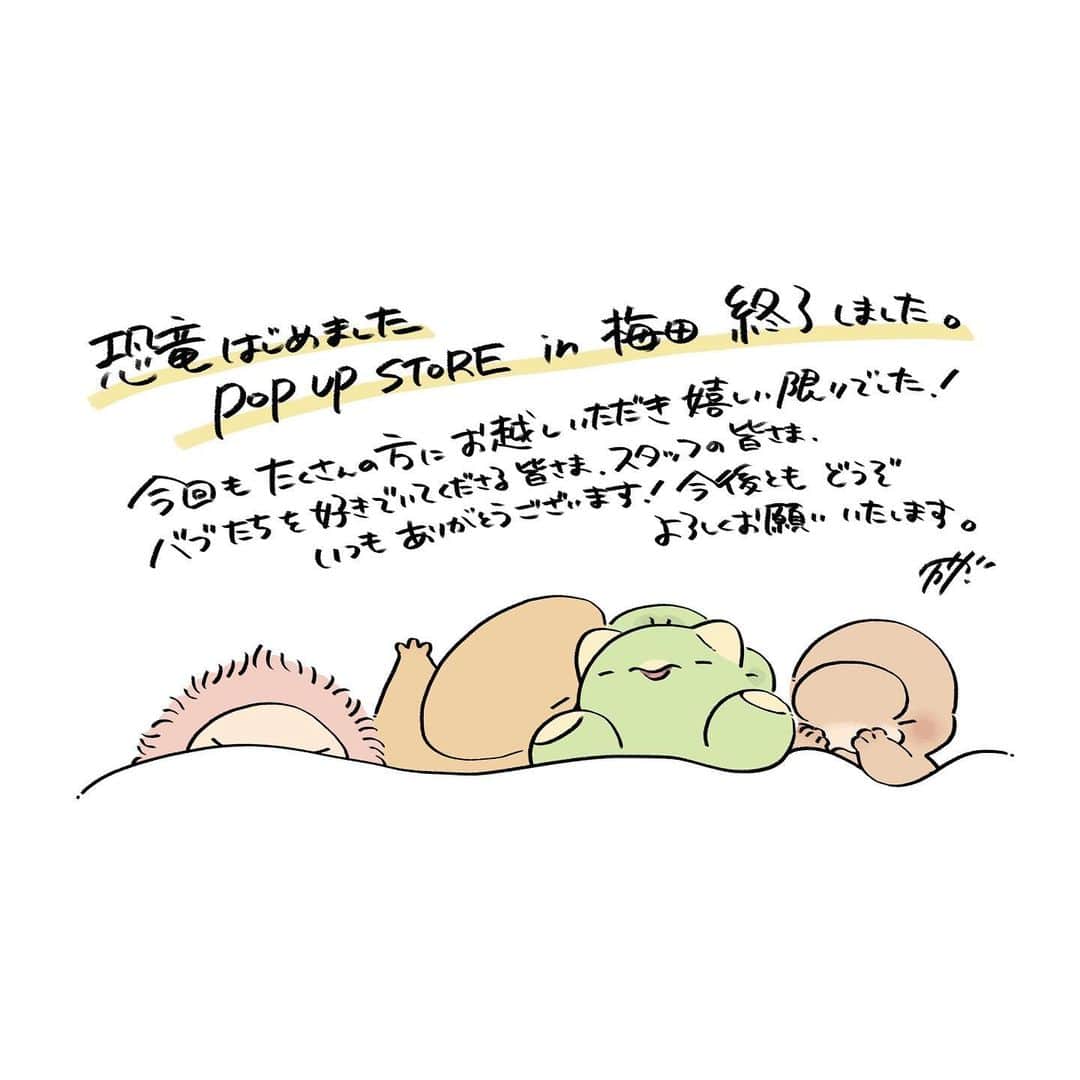 恐竜はじめました
POP UP STORE in 梅田 終了しました。
今回も たくさんの方に お越しいただき 嬉しい限りでした！
バブたちを好きでいてくださる皆さま、スタッフの皆さま、
いつも ありがとうございます！今後とも どうぞ
よろしくお願いいたします。